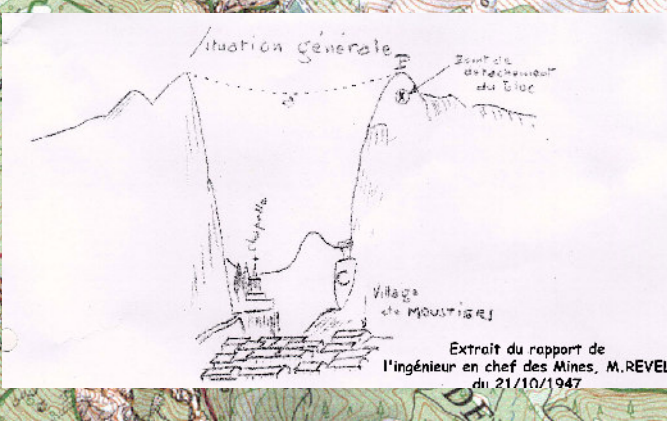 Situation générale
P
Point de
détachement
du bloc
Chapelle
C
Village
de MOUSTIERS
Extrait du rapport de
l'ingénieur en chef des Mines, M.REVEL
du 21/10/1947
DE